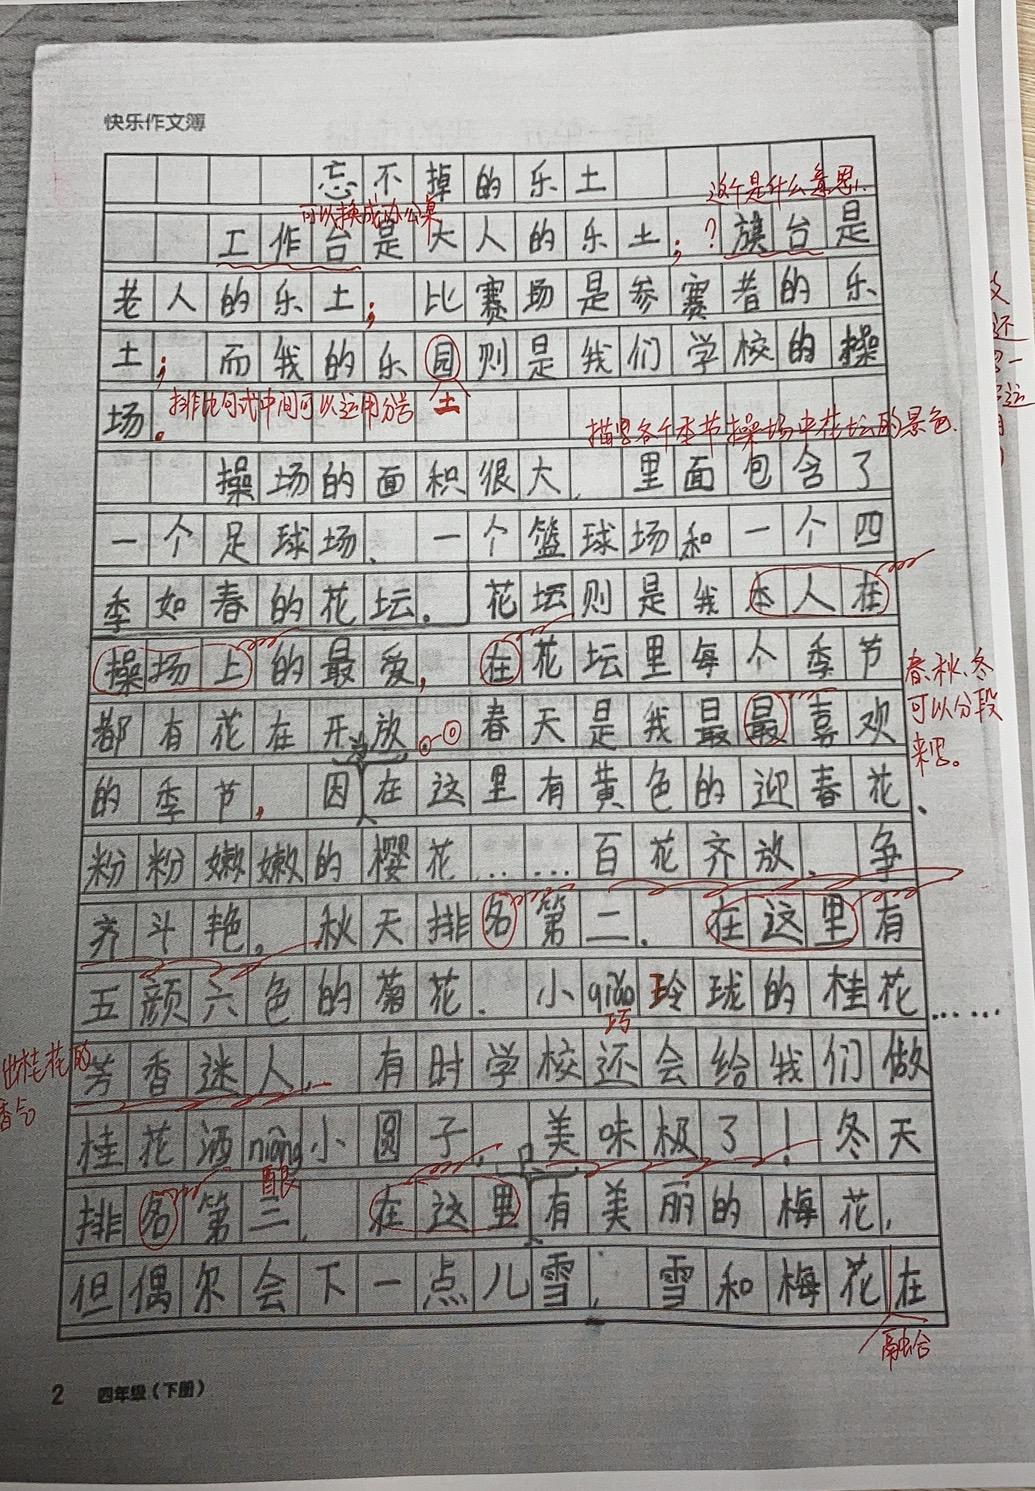 快乐作文簿
忘不掉的乐土
这个是什么意思
可以换成办公桌
工作台是大人的乐土；?旗台是
老人的乐土；比赛场是参赛者的乐
土；而我的乐园则是我们学校的操
土
场。
排比句式中间可以运用分号
描写各个季节操场中花坛的景色.
操场的面积很大，里面包含了
一个足球场、一个篮球场和一个四
季如春的花坛。花坛则是我本人在
操场上的最爱，在花坛里每个季节
都有花在开放。春天是我最最喜欢
春、秋、冬
可以分段
来写。
的季节，因在这里有黄色的迎春花、
为
粉粉嫩嫩的樱花……百花齐放、争
齐斗艳。秋天排名第二，在这里有
五颜六色的菊花、小qiǎo玲珑的桂花……
巧
芳香迷人，有时学校还会给我们做
桂花的
香气
桂花酒niàng小圆子，美味极了！冬天
酿
排名第三，在这里有美丽的梅花，
但偶尔会下一点儿雪，雪和梅花在
融合
2 四年级（下册）